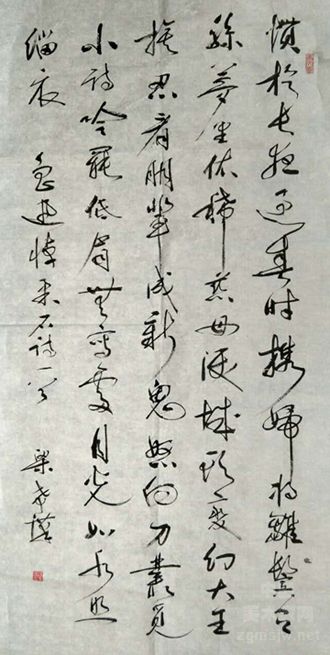 慣於长夜過春時携婦將雛鬢有
絲夢里依稀慈母淚城頭變幻大王
旗忍看朋輩成新鬼怒向刀叢覓
小詩吟罷低眉無寫處月光如水照
緇衣 魯迅悼柔石詩一首 梁